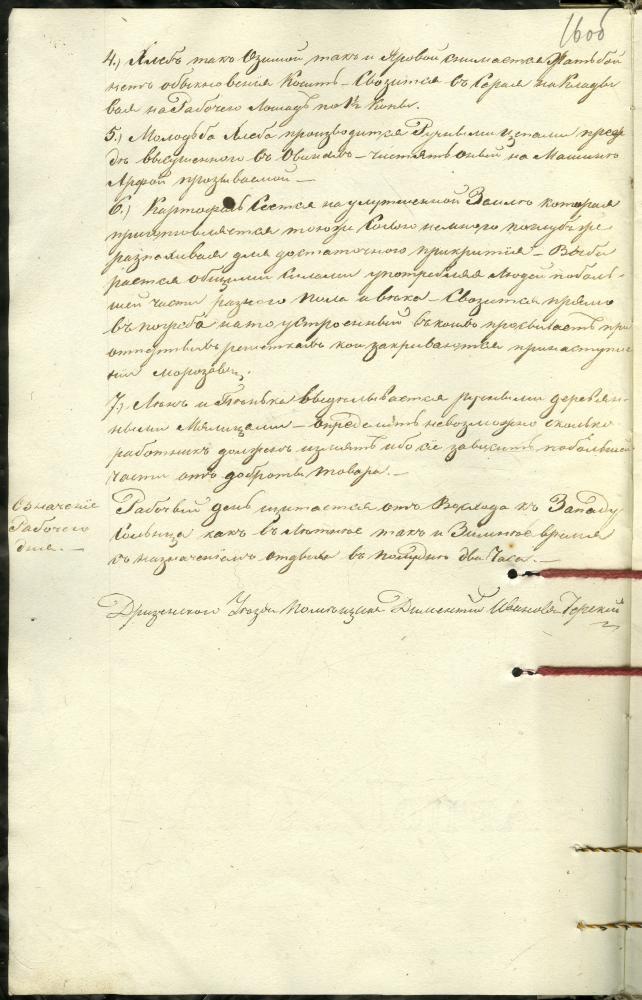 160б
4.) Хлебъ такъ Озимой такъ и Яровой снимается Жатьбой
нетъ обыкновенія Косить – Свозится въ Сараи на Кладь
вая на Рабочего Лошадь по 1½ Копы.
5.) Молодьба Хлеба производится Ручными цепами преж
дѣ высушенного въ Овинахъ – чистятъ оный на Машинѣ
Арфой прозываемой –
6.) Картофель Сеется на улутшенной Землѣ которая
приготовляется тою же Сохою немного поглубъже
разпахивая для достаточного прикрытія – Выби
рается общими Силами употребляя Людей поболь-
шей части разного пола и века – Свозится прямо
въ погреба на то устроенный въ коихъ
решеткамъ кои закриваются при наступле
ніи морозовъ.
7.) Ленъ и Пенька выделывается ручными деревян-
ными Мялицами – определить невозможно сколько
работникъ долженъ измять ибо сіе зависитъ побольшей
части отъ доброты товара. –
Означеніе
Рабочего
дня. –
Рабочій день щитается отъ Восхода къ Западу
Солнца какъ въ Лѣтнѣе такъ и Зимнѣе время
съ назначеніемъ отдыха въ полудню два Часа. –
Дризенского Уезда Помѣщикъ Дементій Ивановъ